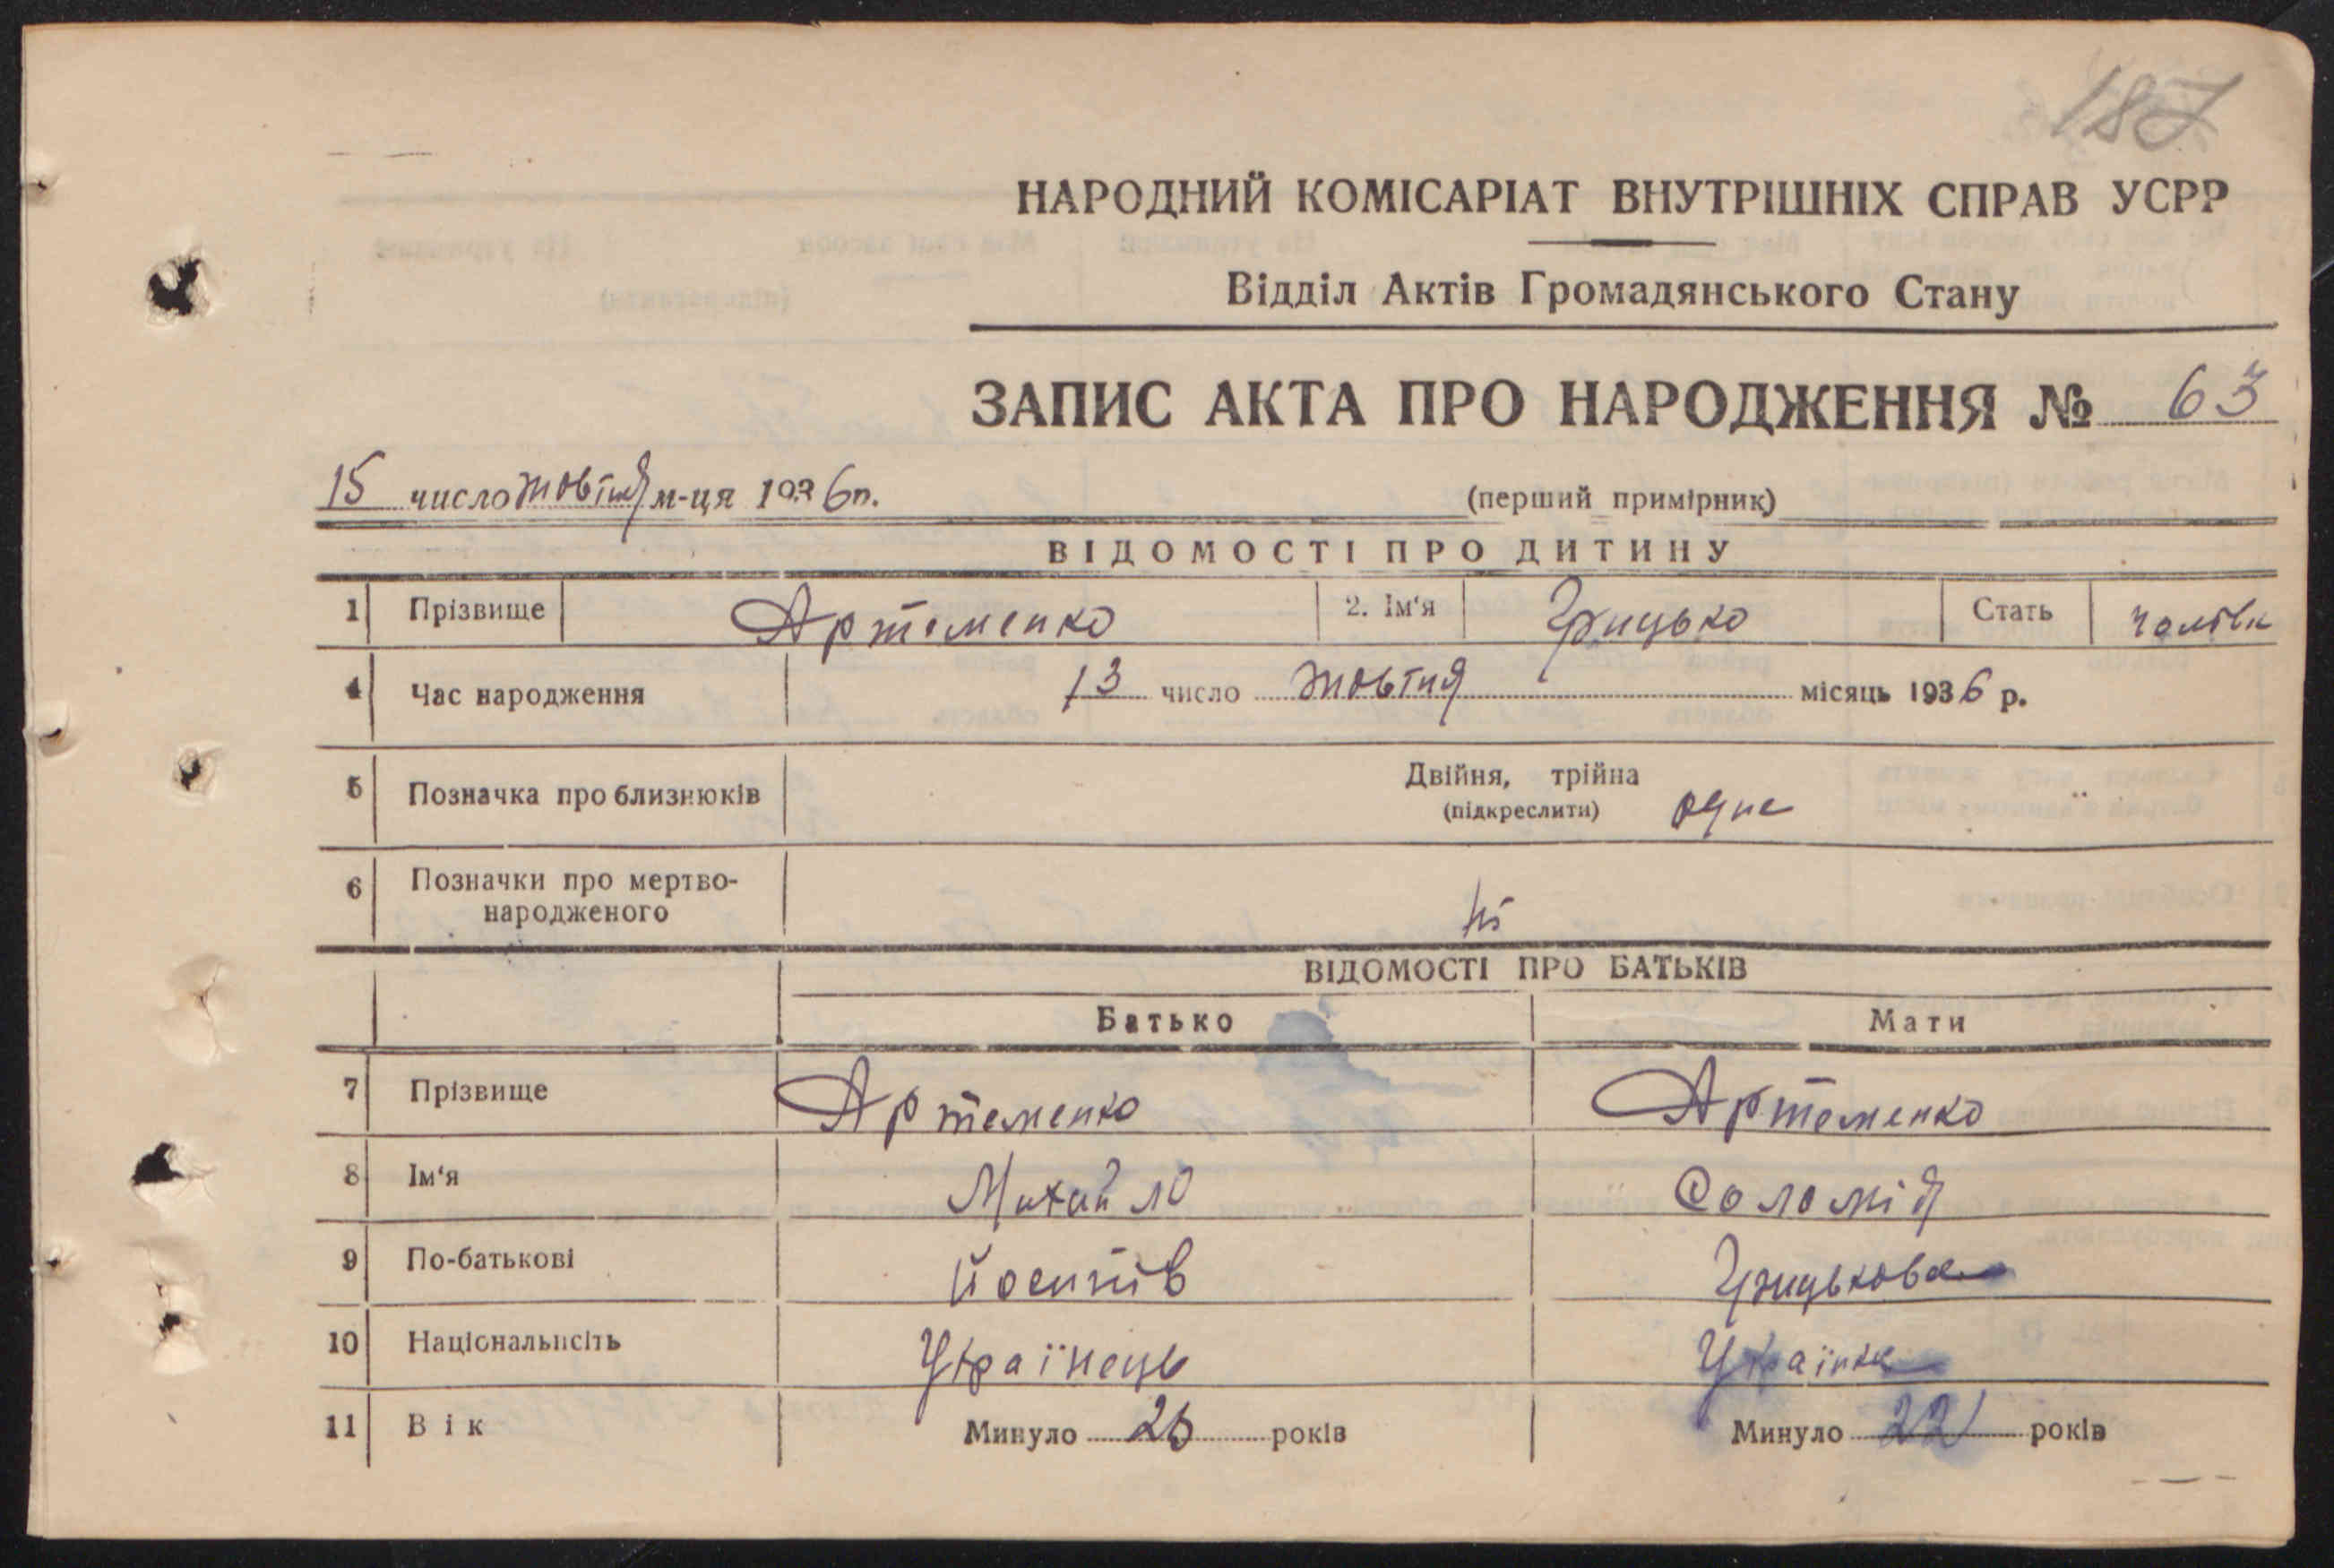 187
НАРОДНИЙ КОМІСАРІАТ ВНУТРІШНІХ СПРАВ УСРР
Відділ Актів Громадянського Стану
ЗАПИС АКТА ПРО НАРОДЖЕННЯ № 63
15 число жовтня м-ця 1936 р.
(перший примірник)
ВІДОМОСТІ ПРО ДИТИНУ
1 Прізвище Артеменко 2. Ім'я Грицько Стать чоловіч
4 Час народження 13 число жовтня місяць 1936 р.
5 Позначка про близнюків Двійня, трійна
(підкреслити) одне
6 Позначки про мертво-
народженого ні
ВІДОМОСТІ ПРО БАТЬКІВ
Батько Мати
7 Прізвище Артеменко Артеменко
8 Ім'я Михайло Соломія
9 По-батькові Йосипів Грицькова
10 Національнсіть Українець Українка
11 Вік Минуло років Минуло 22 років